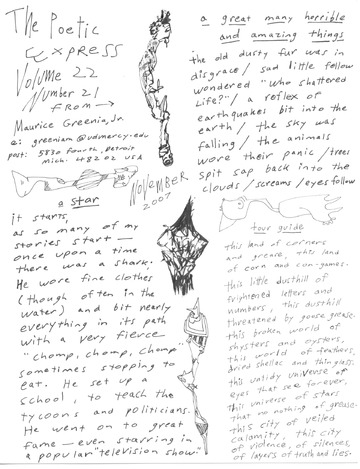 The Poetic
Express
Volume 22
Number 21
FROM →
Maurice Greenia, Jr.
e: greenian@udmercy.edu
post: 5830 Fourth, Detroit
Mich. 48202 USA
November
2007
a star
it starts,
as so many of my
stories start —
once upon a time
there was a shark.
He wore fine clothes
(though often in the
water) and bit nearly
everything in its path
with a very fierce
"chomp, chomp, chomp"
sometimes stopping to
eat. He set up a
school, to teach the
tycoons and politicians.
He went on to great
fame — even starring in
a popular "television show".
a great many horrible
and amazing things
the old dusty fur was in
disgrace / sad little fellow
wondered "who shattered
Life?" / a reflex of
earthquakes bit into the
earth / the sky was
falling / the animals
wore their panic / trees
spit sap back into the
clouds / screams / eyes follow
tour guide
this land of corners
and grease, this land
of corn and con-games.
this little dusthill of
frightened letters and
numbers, this dusthill
threatened by goose grease.
this broken world of
oysters and oysters,
this world of feathers,
dried shells and thin glass.
this untidy universe of
eyes that see forever,
this universe of stars
that no nothing of grease.
this city of veiled
calamity, this city
of violence, of silences,
of layers of truth and lies.